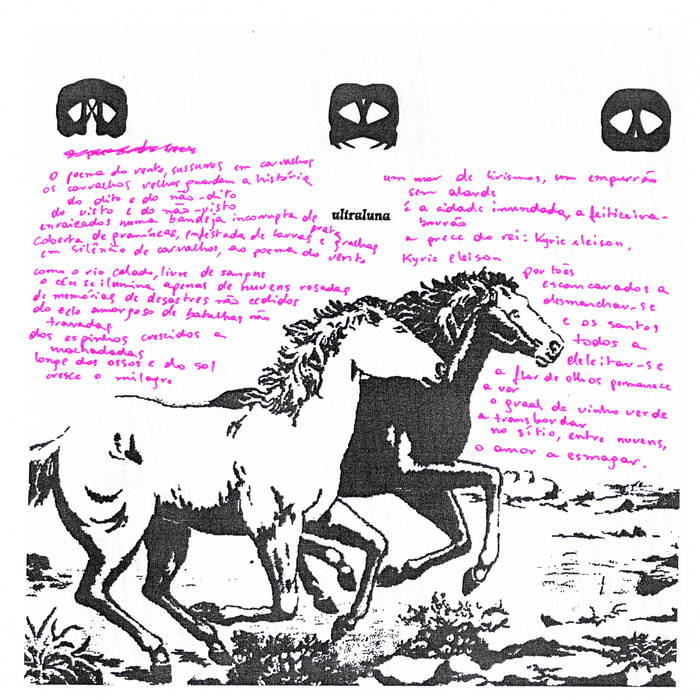 O poema do vento, sussurros em carvalhos
os carvalhos velhos guardam a história
do dito e do não-dito
do visto e do não-visto
enraizados numa bandeja incorrupta de prata
coberta de gramíneas, infestada de larvas e gralhas
em silêncio de carvalhos, ao poema do vento
como o rio calado, livre de sangue
o céu se ilumina apenas de nuvens rosadas
de memórias de desastres não cedidos
do zelo amoroso de batalhas não
travadas
dos espinhos crescidos a
machadadas
longe dos ossos e do sol
cresce o milagre
ultraluna
um mar de lirismos, um empurrão
sem alarde
é a cidade inundada, a feiticeira-
borrão
a prece do rei: Kyrie eleison,
Kyrie eleison
portões
escancarados a
desmanchar-se
e os santos
todos a
deleitar-se
a flor de olhos permanece
a ver
o graal de vinho verde
a transbordar
no sítio, entre nuvens,
o amor a esmagar.